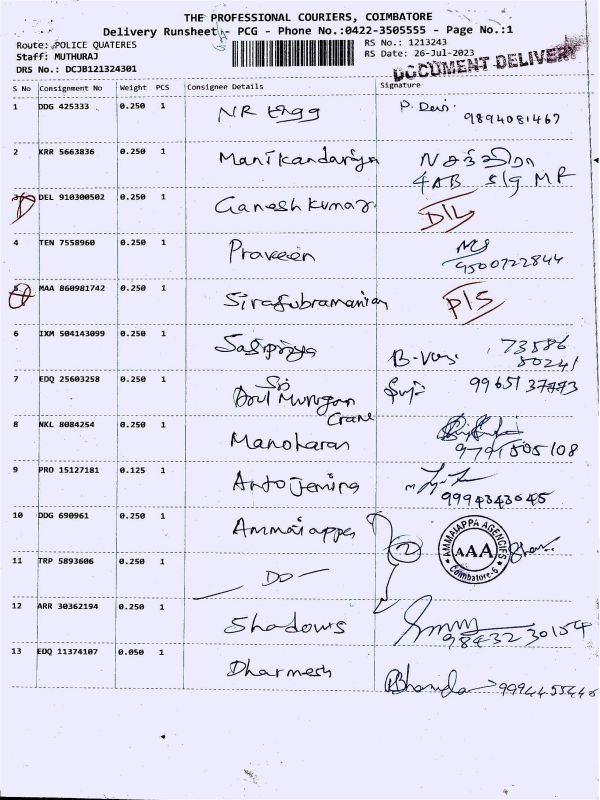 THE PROFESSIONAL COURIERS, COIMBATORE
Delivery Runsheet - PCG - Phone No.:0422-3505555 - Page No.:1
Route: POLICE QUATERES RS No.: 1213243
Staff: MUTHURAJ RS Date: 26-Jul-2023
DRS No.: DCJB121324301 DOCUMENT DELIVERY
S No Consignment No Weight PCS Consignee Details Signature
1 DDG 425333 0.250 1 NR P. Devi. 9894081467
2 KRR 5663836 0.250 1 Manikandariya
4AB S/g MF
3 DEL 910300502 0.250 1 Ganesh Kumar D/L
4 TEN 7558960 0.250 1 Praveen 9500722844
5 MAA 860981742 0.250 1 Sirasubramanian P/S
6 IXM 504143099 0.250 1 Sasipriya 73586
80241
7 EDQ 25603258 0.250 1 Sri
Arul Murugan
Crane
8 NKL 8084254 0.250 1 Manoharan 9791505108
9 PRO 15127181 0.125 1 Anto Jemina 9994343045
10 DDG 690961 0.250 1 Ammaiappa 2 AMMAIAPPA AGENCIES AAA Coimbatore-6
11 TRP 5893606 0.250 1 — DO —
12 ARR 30362194 0.250 1 Shadows 98432 30154
13 EDQ 11374107 0.050 1 Dharmesh